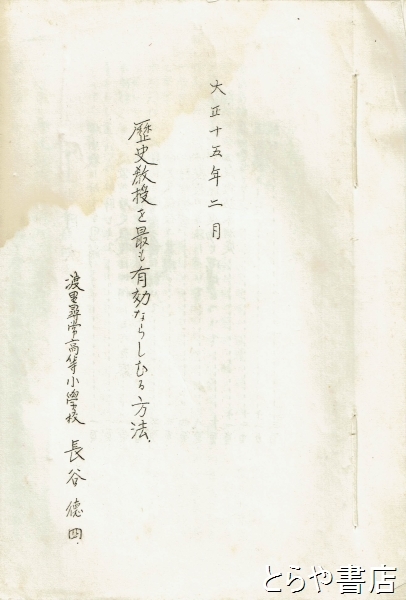 大正十五年二月
歷史教授を最も有効ならしむる方法、
渡里尋常高等小學校 長谷徳四、
とらや書店